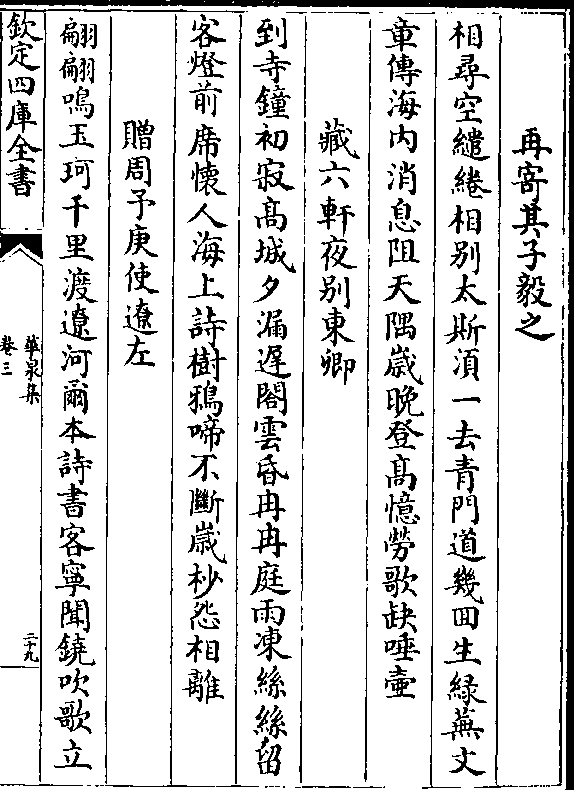 再寄其子毅之
相尋空繾綣相别太斯湏一去青門道幾回生緑蕪文
章傳海内消息阻天隅嵗晩登髙憶勞歌缺唾壷
藏六軒夜别東卿
到寺鐘初寂髙城夕漏遲閣雲昏冉冉庭雨凍絲絲留
客燈前席懷人海上詩樹鴉啼不斷嵗杪怨相離
贈周予庚使遼左
翩翩鳴玉珂千里渡遼河爾本詩書客寧聞鐃吹歌立
欽定四庫全書
華泉集
卷三
二十九